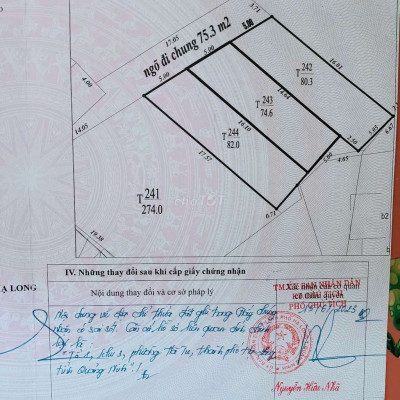 3.71
17.05
5.00
ngõ đi chung 75.3 m2
5.00
5.00
4.00
T 242
80.3
16.01
T 243
74.6
14.64
T 244
82.0
16.10
14.05
17.57
2.50
5.05
4.65
5.00
6.71
T 241
274.0
19.38
b2
Ạ LONG
IV. Những thay đổi sau khi cấp giấy chứng nhận
Nội dung thay đổi và cơ sở pháp lý
Xác nhận của cơ quan
có thẩm quyền
TM. ỦY BAN NHÂN DÂN
PHÓ CHỦ TỊCH
Nội dung về địa chỉ thửa đất ghi trong Giấy chứng
nhận có sai sót. Căn cứ hồ sơ
là
khu 3, phường Hà Tu, thành phố Hạ Long,
tỉnh Quảng Ninh"
Nguyễn Hữu Nhã